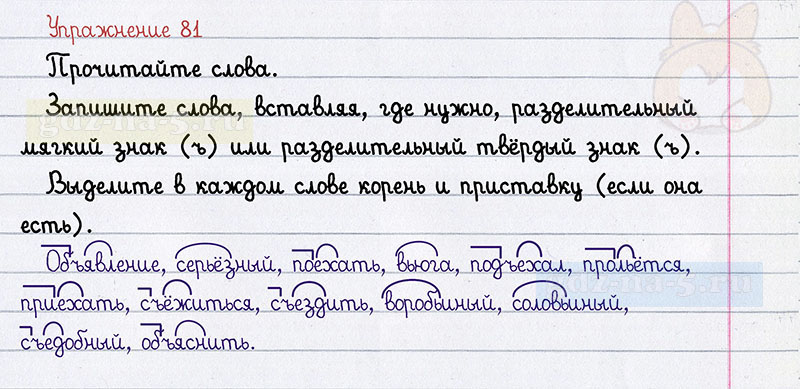 Упражнение 81
Прочитайте слова.
Запишите слова, вставляя, где нужно, разделительный
мягкий знак (ъ) или разделительный твёрдый знак (ъ).
Выделите в каждом слове корень и приставку (если она
есть).
Объявление, серьёзный, поехать, вьюга, подъехал, прольётся,
приехать, съёжиться, съездить, воробьиный, соловьиный,
съедобный, объяснить.
gdz-na-5.ru
gdz-na-5.ru